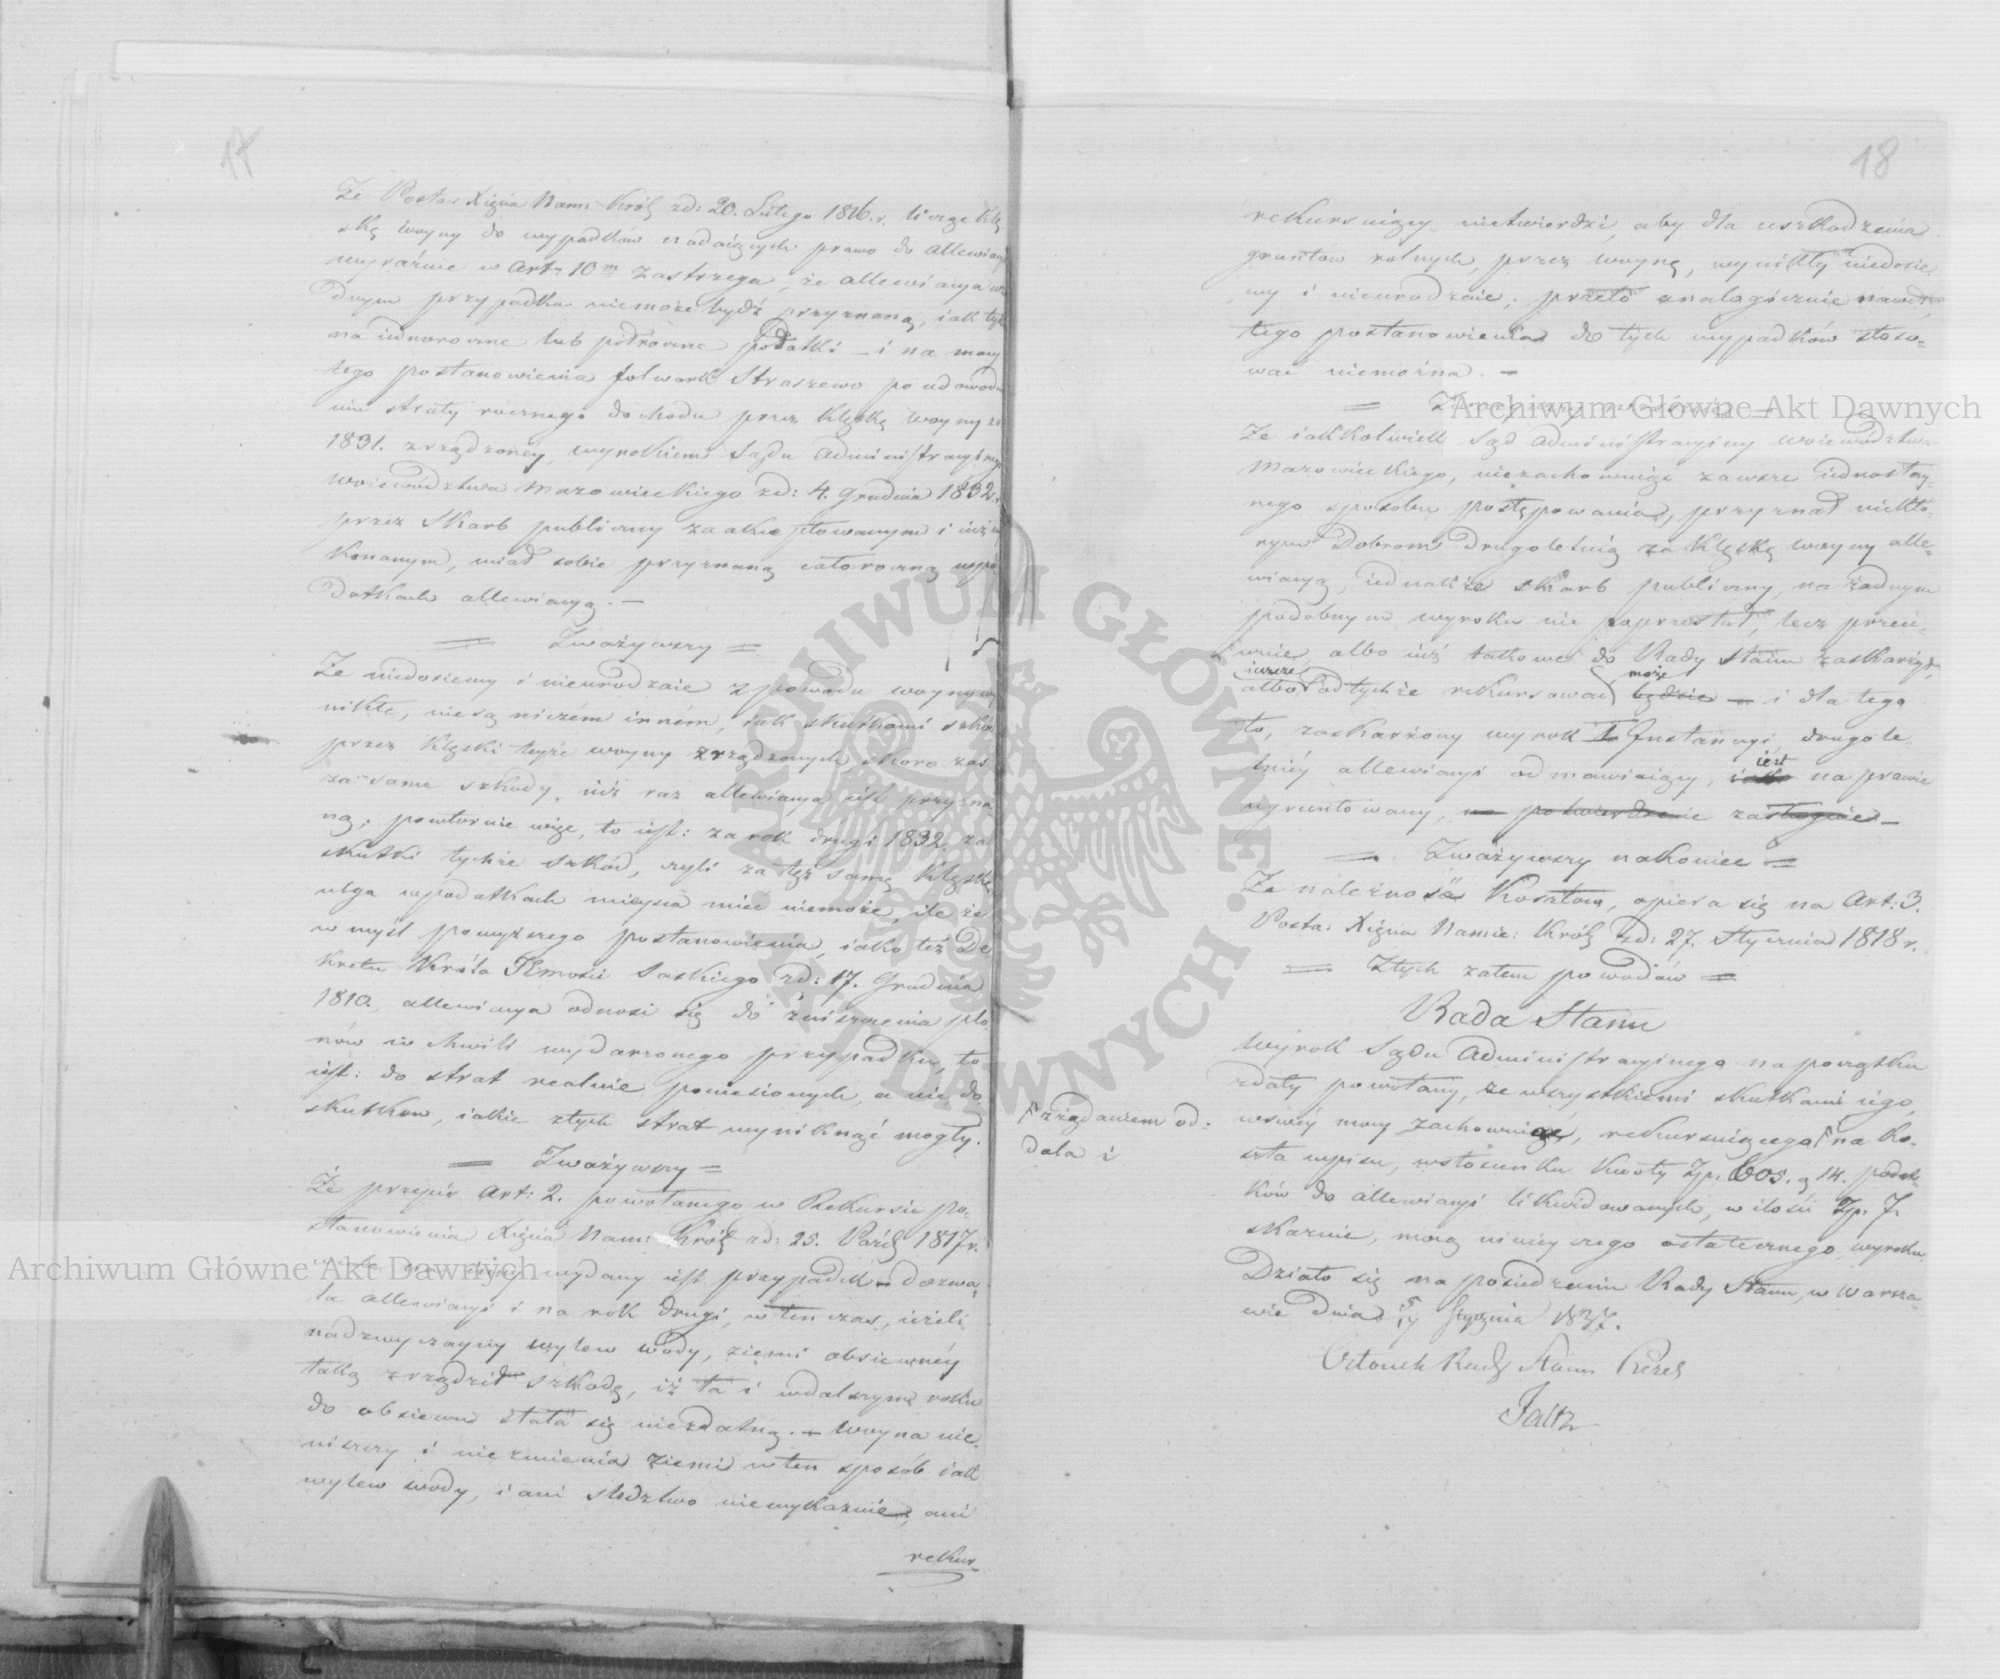 17
Że Posta: Xięcia Nam: Król: zd: 20. Lutego 1816. r. licząc klę
skę woyny do wypadków nadaiących prawo do allewiacyi
wyraźnie w Art: 10m zastrzega, że allewiacya w
dnym przypadku niemoże bydź przyznaną, iak tylko
na iednoroczne lub półroczne podatki — i na mocy
tego postanowienia folwark Straszewo po udowod
niu straty rocznego dochodu przez klęskę woyny w
1831. zrządzoney, wyrokiem Sądu Administracyinego
Woiewództwa Mazowieckiego zd: 4. Grudnia 1832.
przez Skarb publiczny zaakceptowanym i iuż wy
konanym, miał sobie przyznaną całoroczną w po
datkach allewiacyą. —
= Zważywszy =
Że niedosiewy i nieurodzaie z powodu woyny wy
nikłe, niesą niczém inném, iak skutkami szkód
przez klęski teyże woyny zrządzonych, skoro zaś
za same szkody, iuż raz allewiacya iest przyzna
ną; powtórnie więc, to iest: za rok drugi 1832. za
skutki tychże szkód, czyli za tęż samę klęskę
ulga w podatkach mieysca mieć niemoże, ile że
w myśl powyższego postanowienia, iako też De
kretu Króla JKmości Saskiego zd: 17. Grudnia
1810. allewiacya odnosi się do zniszczenia plo
nów w chwili wydarzonego przypadku, to
iest: do strat realnie poniesionych, a nie do
skutków, iakie ztych strat wyniknąć mogły.
= Zważywszy =
Że przepis Art: 2. powołanego w Rekursie Po-
stanowienia Xięcia Nam: Król: zd: 25. Paźdz 1817 r.
wydany iest przypadek dozwa
la allewiacyi i na rok drugi, w ten czas, ieżeli
nadzwyczayny wylew wody, ziemi obsiewnéy
taką zrządził szkodę, iż ta i w dalszym roku
do obsiewu stała się niezdatną. — Woyna nie
niszczy i niezmienia ziemi w ten sposób iak
wylew wody, i ani śledztwo niewykazuie, ani
rekur-
18
rekursuiący nietwierdzi, aby dla uszkodzenia
gruntów rolnych, przez woynę, wynikły niedosie
wy i nieurodzaie; przeto analogicznie nawet
tego postanowienia do tych wypadków stoso-
wać niemożna. —
= Zważywszy =
Że iakkolwiek Sąd Administracyiny Woiewództwa
Mazowieckiego, niezachowuiąc zawsze iednostay-
nego sposobu postępowania, przyznał niektó-
rym Dobrom drugoletnią za klęskę woyny alle-
wiacyą, iednakże Skarb publiczny, na żadnym
podobnym wyroku nie poprzestał, lecz przeci-
wnie, albo iuż takowe do Rady Stanu zaskarżył,
ieszcze może
albo od tychże rekursować będzie — i dla tego
to, zaskarżony wyrok I Instancyi, drugole-
iest
tniéy allewiacyi odmawiaiący, iako na prawie
ugruntowany, na potwierdzenie zasługuie —
= Zważywszy nakoniec =
Że należność Kosztów, opiera się na Art: 3.
Posta: Xięcia Namie: Król: zd: 27. Stycznia 1818 r.
= Ztych zatem powodów =
Rada Stanu
Wyrok Sądu Administracyinego na początku
zdaty powołany, ze wszystkiemi skutkami iego,
z żądaniem od:
dala i
w swéy mocy zachowuiąc, rekursuiącego na Ko-
szta wpisu, w stosunku Kwoty Zp. 605. g 14. podat-
ków do allewiacyi likwidowanych, w ilości Zp. 7.
skazuie, mocą ninieyszego ostatecznego wyroku.
Działo się na posiedzeniu Rady Stanu, w Warsza-
wie dnia 5/17 Stycznia 1837.
Członek Rady Stanu Prezes
Faltz
Archiwum Główne Akt Dawnych
Archiwum Główne Akt Dawnych
ARCHIWUM GŁÓWNE AKT DAWNYCH